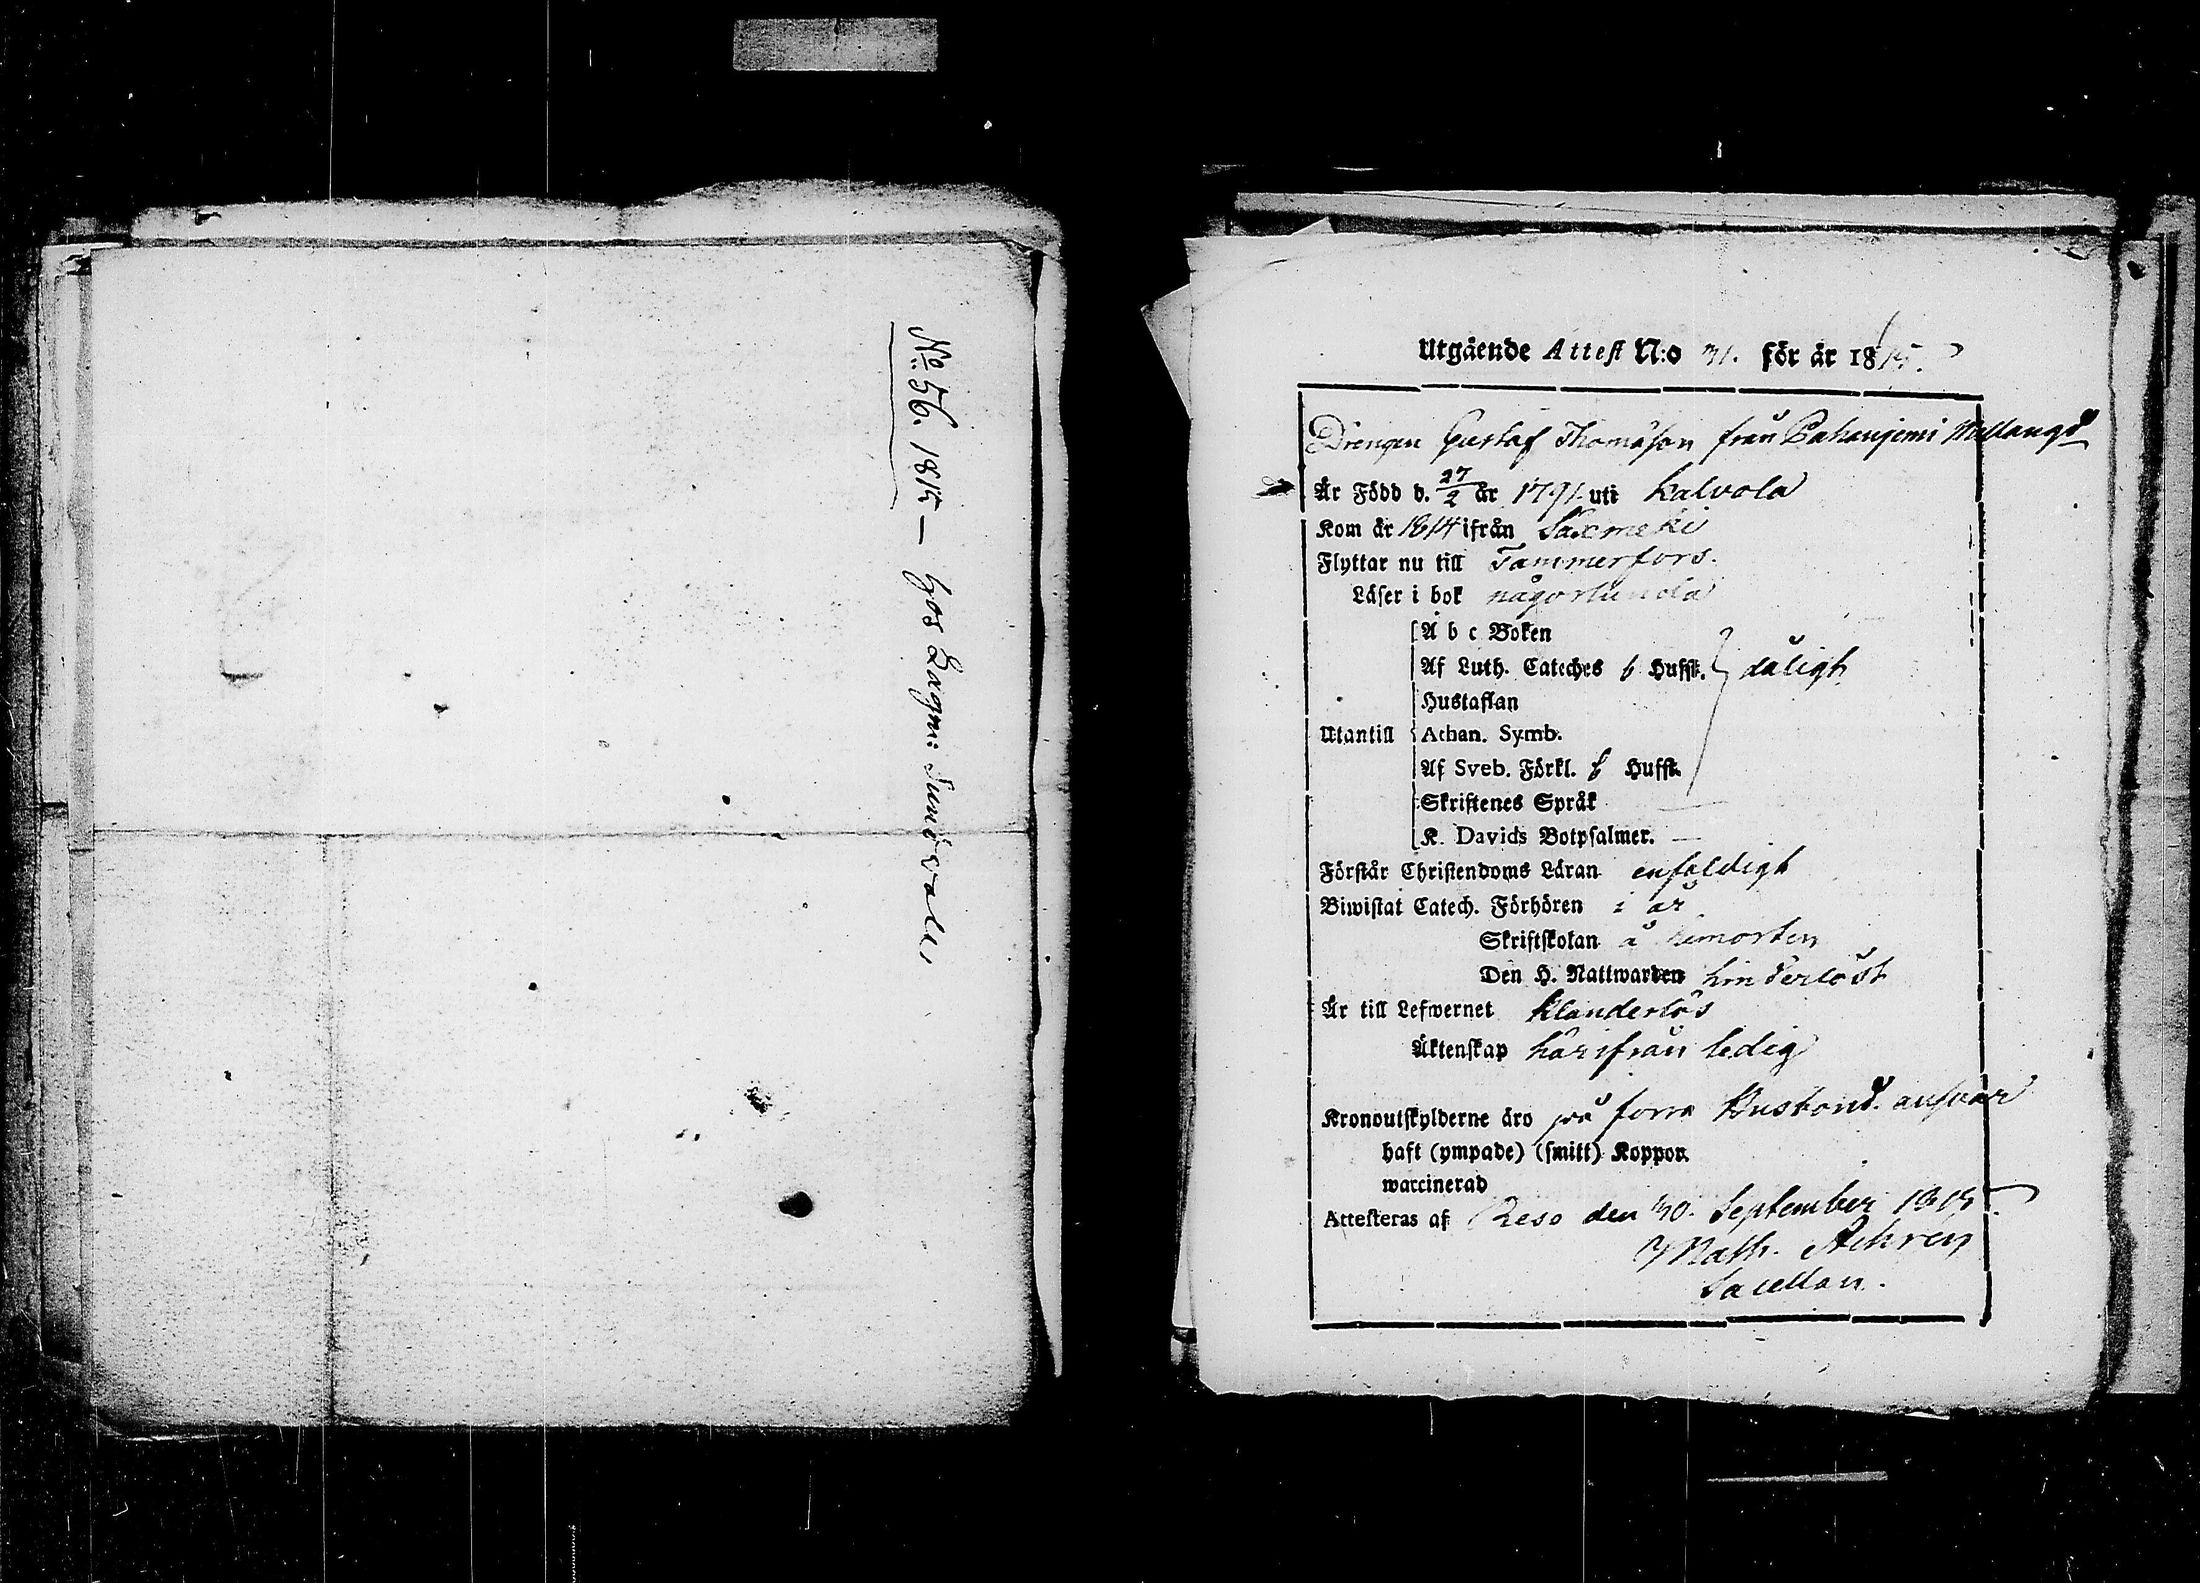 No. 56. 1815 — hos Lagm: Sunévalls
Utgående Attest N:o 31. för år 1815.
Drengen Gustaf Thomasson från Pahanjemi Mellangd
Är Född d. 27/2 år 1791 uti Kalvola
Kom år 1814 ifrån Säxmeki
Flyttar nu till Tammerfors.
Läser i bok någorlunda
A b c Boken
Af Luth. Cateches 6 Hufst. } dåligt
Hustaflan
Utantill Athan. Symb.
Af Sveb. Förkl. 6 Hufst.
Skriftenes Språk —
K. Davids Botpsalmer. —
Förstår Christendoms Läran enfaldigt
Biwistat Catech. Förhören i år
Skriftskolan å hemorten
Den H. Nattwarden hinderlöst
Är till Lefwernet klanderlös
Äktenskap härifrån ledig
Kronoutskylderne äro på förra Husbond. ansvar
haft (ympade) (smitt) Koppor.
waccinerad
Attesteras af Reso den 30. September 1815.
Math. Achrén
Sacellan.